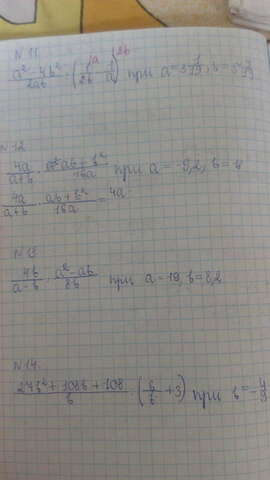 N 11.
a² - 4b² / 2ab · (1/2b - 1/a) при a = 3 1/17, b = 5 2/17
N 12
4a / a+b · ab + b² / 16a при a = -9,2, b =
4a / a+b · ab + b² / 16a = 4a
N 13
4b / a-b · a² - ab / 8b при a = 19, b = 8,2
N 14.
27b² + 108b + 108 / b · (6/b + 3) при b = -4/9